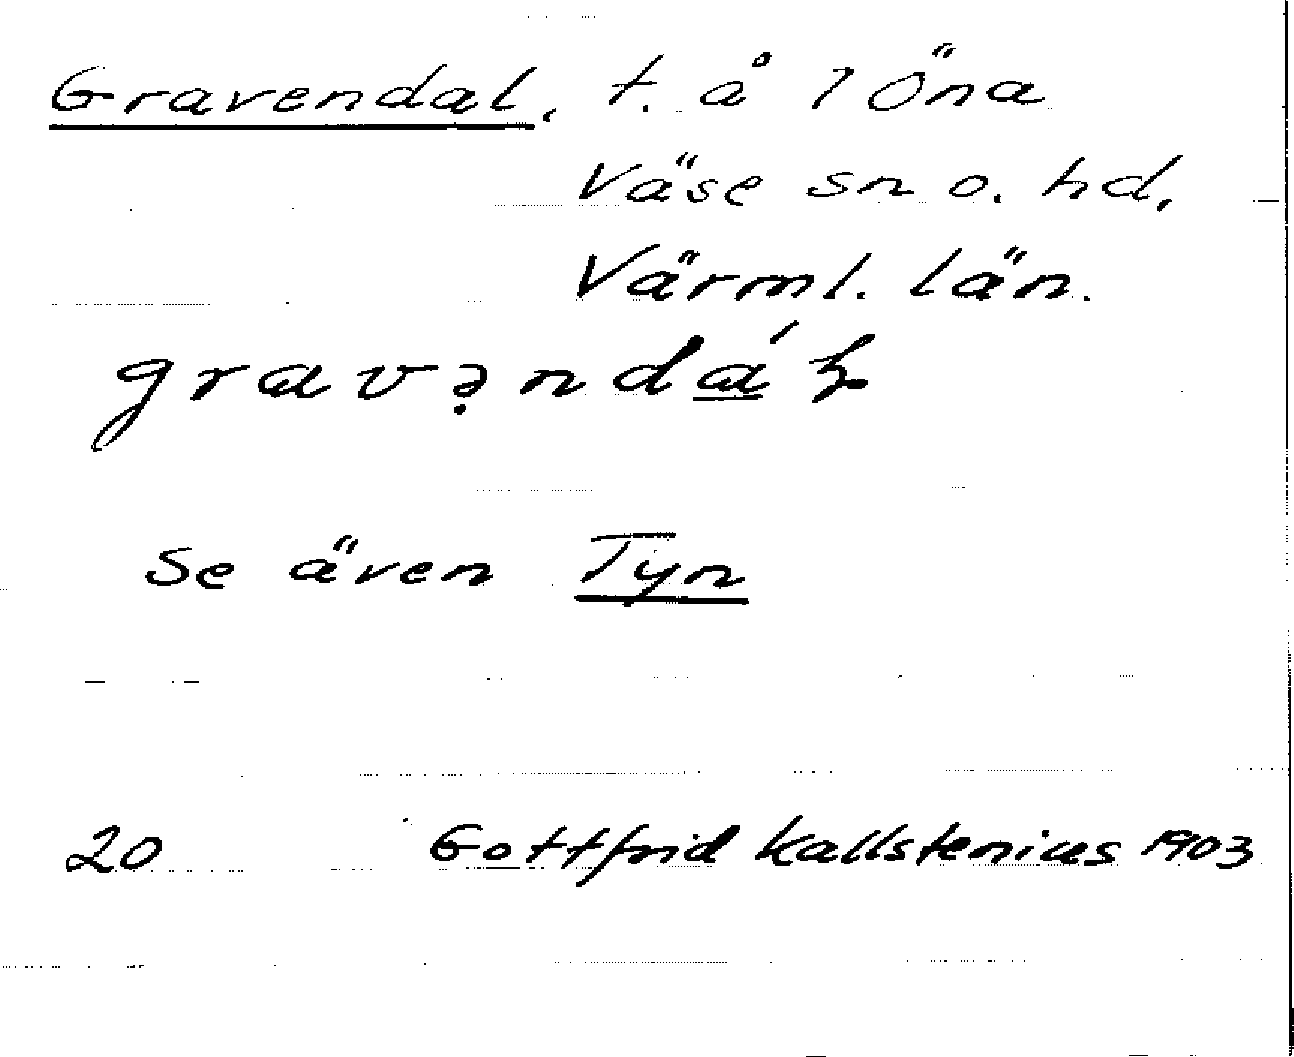 Gravendal, t. å 1 Öna
Väse sn o. hd,
Värml. län.
gravə̣ndáɫ
Se även Tyn
20 Gottfrid Kallstenius 1903